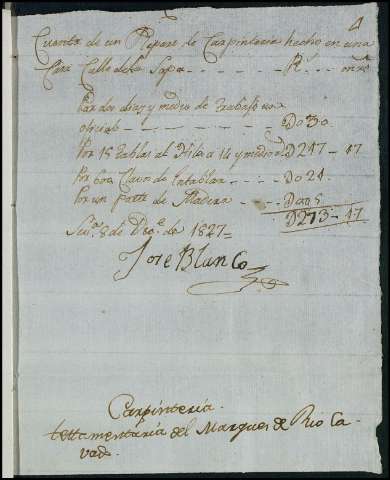 4
Cuenta de un Reparo de Carpinteria hecho en una
Casa Calle de la Sopa - - - - - R.s - - mrs
Por dos dias y medio de trabajo
oficial - - - - - - D030
Por 15 tablas al Hilo a 14 y medio D217 - 17
Por Clavos de entablar - - D024
Por un parte de Madera - - D005
D273 - 17
8 de Dbre. de 1827
Jose Blanco
Carpinteria.
testamentaria del Marques de Rio Ca-
vado